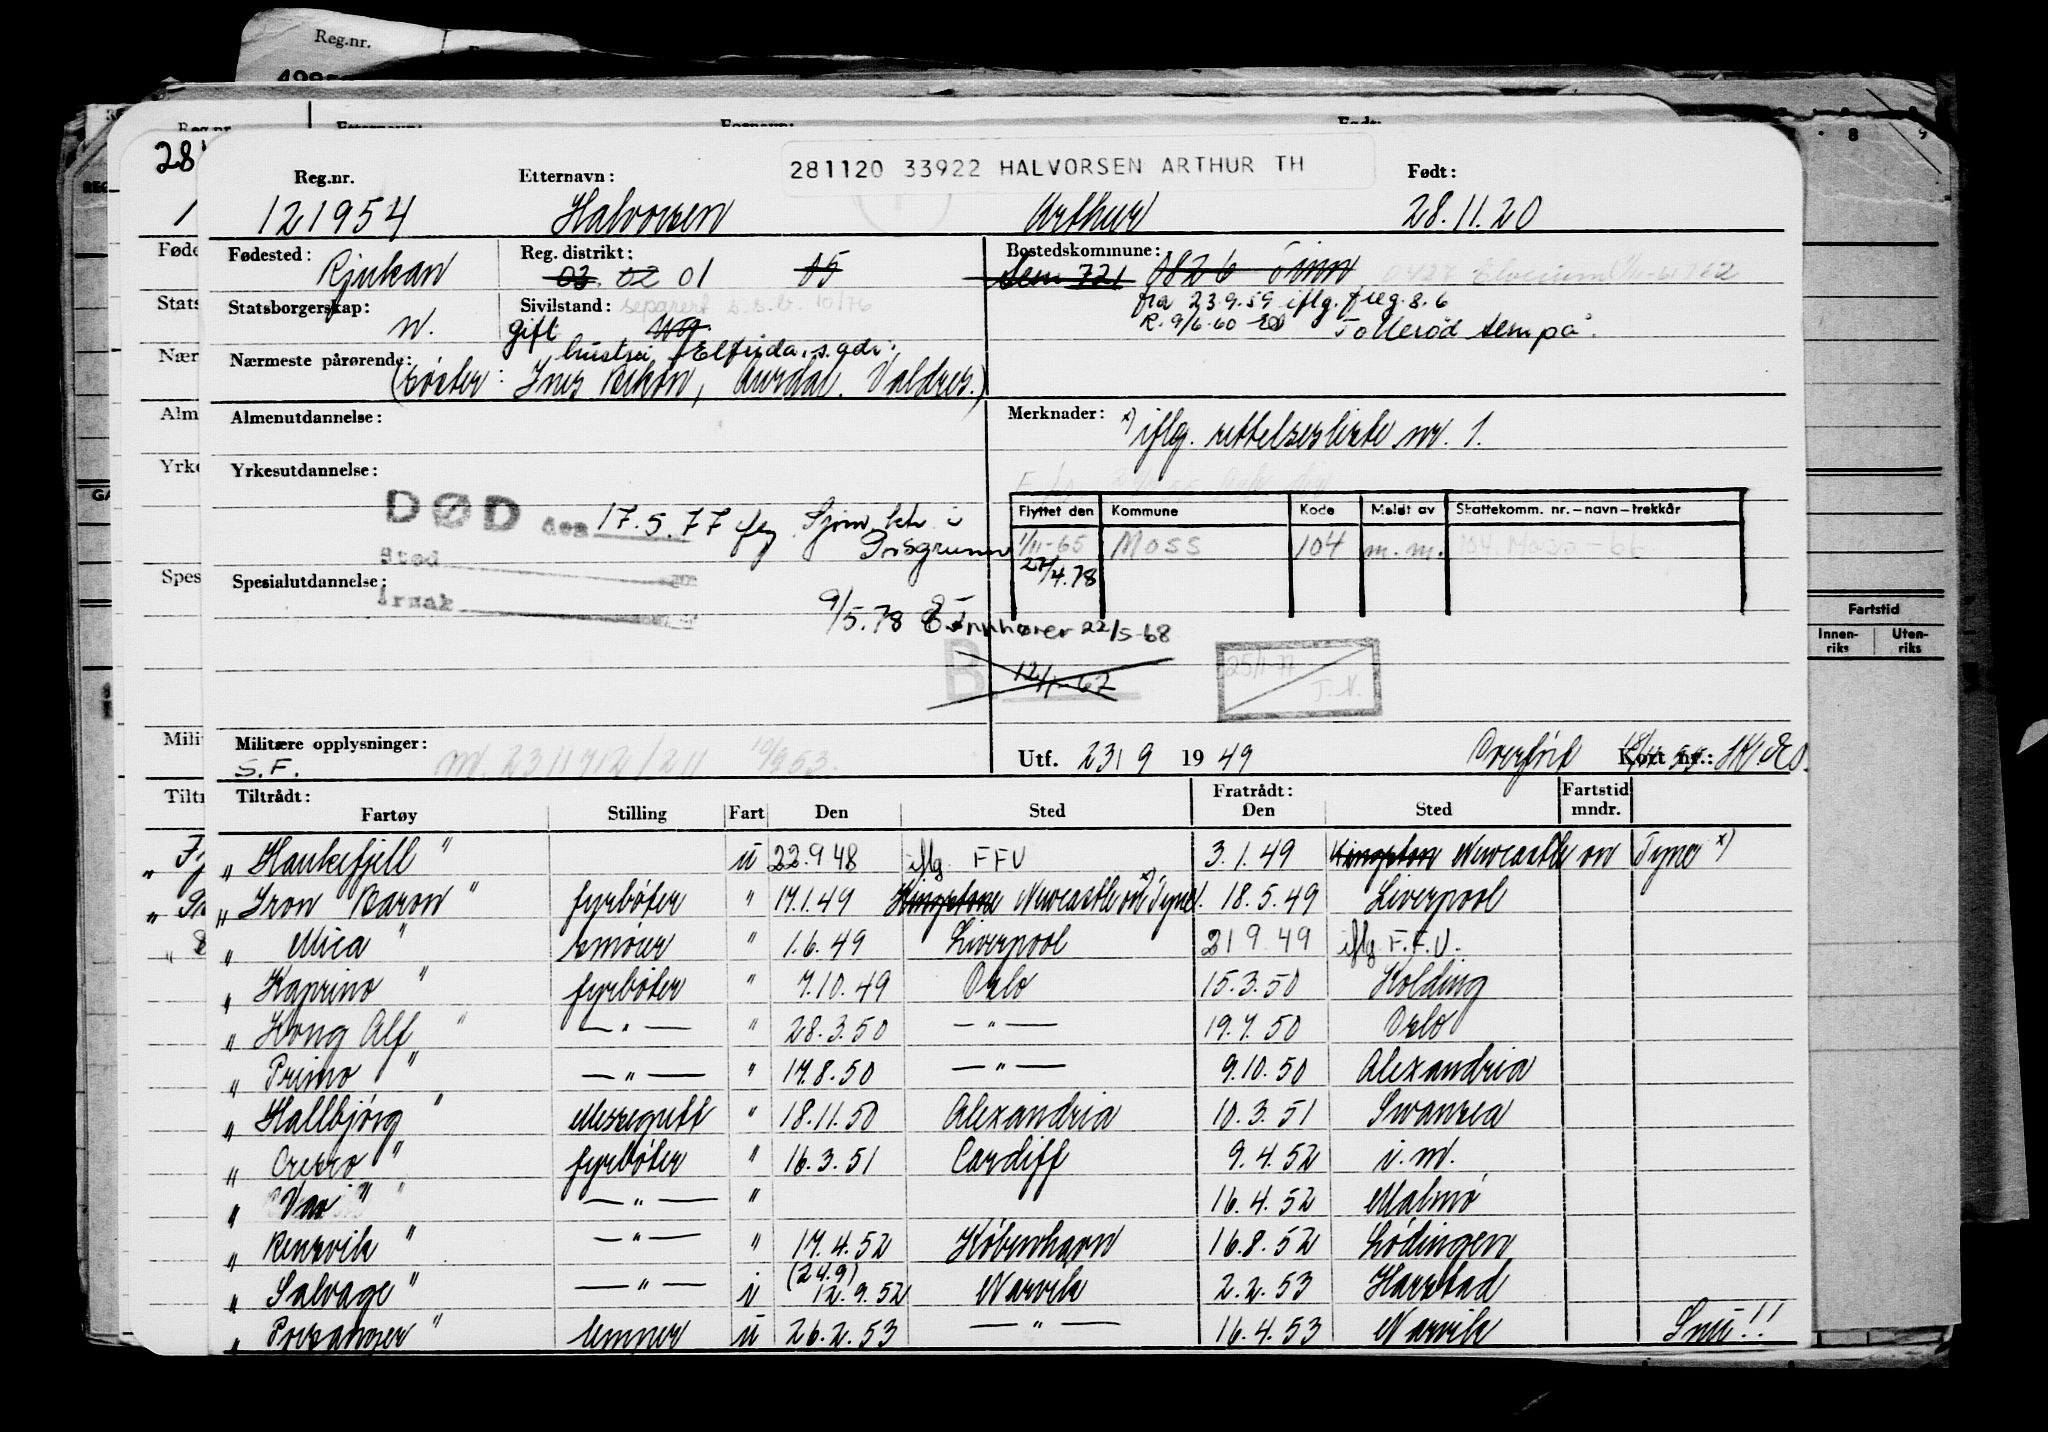 Reg.nr.
28
281120 33922 HALVORSEN ARTHUR TH
Reg.nr. Etternavn: Født:
121954 Halvorsen Arthur 28.11.20
Fødested: Rjukan Reg. distrikt: 03 02 01 05 Bostedskommune: Sem 721 0826 Tinn
fra 23.9.59 iflg. freg. 8.6
Statsborgerskap: n. Sivilstand: separert s.s.b. 10/76
gift ug. R. 9/6-60
hustru Elfrida, s. adr.
Nærmeste pårørende: (søster: Ines Aurdal. Valdres.)
Almenutdannelse: Merknader: x) iflg. rettelsesliste nr. 1.
Yrkesutdannelse:
DØD den 17.5.77
Porsgrunn
Sted
Årsak
Flyttet den Kommune Kode Meldt av Skattekomm. nr. – navn – trekkår
1/11-65 Moss 104 m.m. 104 Moss - 66
27/4.78
Spesialutdannelse:
9/5.78
22/5-68
B 12/1-67
25/1-77
J.N.
Militære opplysninger:
S.F. 10/9 53.
Utf. 23/9 1949 Kort nr.:
Tiltrådt: Fratrådt: Fartstid
Fartøy Stilling Fart Den Sted Den Sted mndr.
" Haukefjell " u 22.9 48 iflg. FFU 3.1.49 Kingston Newcastle on Tyne x)
" Iron Baron " fyrbøter " 17.1.49 Kingston Newcastle on Tyne x) 18.5.49 Liverpool
" Mica " smører " 1.6.49 Liverpool 21 9.49 iflg. F.F.U.
" Kaprino " fyrbøter " 7.10.49 Oslo 15.3.50 Kolding
" Kong Alf " — " — " 28.3.50 — " — 19.7.50 Oslo
" Primo " — " — " 17.8.50 — " — 9.10.50 Alexandria
" Hallbjørg " Messegutt " 18.11.50 Alexandria 10.3.51 Swansea
" Cresco " fyrbøter " 16.3.51 Cardiff 9.4.52 i.m.
" Vai " — " — " 16.4.52 Malmø
" Rensvik " — " — " 17.4.52 København 16.8.52 Lødingen
" Salvage " — " — i (24.9) 12.9.52 Narvik 2.2.53 Harstad
" Porsanger " lemper u 26.2.53 — " — 16.4.53 Narvik Snu!!
Fartstid
Innen-riks Uten-riks